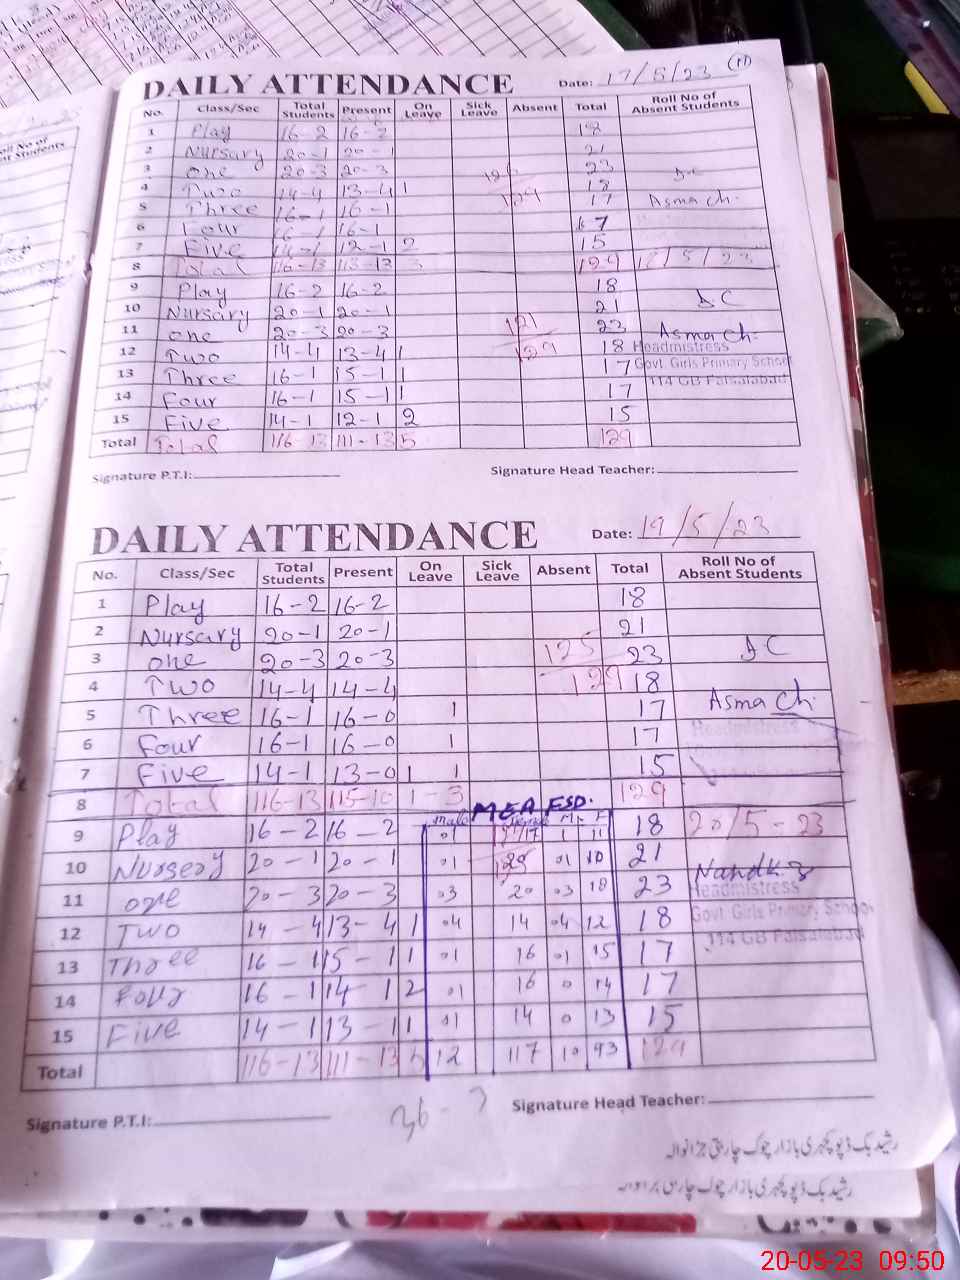 DAILY ATTENDANCE Date: 17/5/23 (11)
No. Class/Sec Total Students Present On Leave Sick Leave Absent Total Roll No of Absent Students
1 Play 16-2 16-2 18
2 Nursary 20-1 20-1 21
3 one 20-3 20-3 23
4 Two 14-4 13-4 1 129 18
5 Three 16-1 16-1 17 Asma Ch.
6 Four 16-1 16-1 17
7 Five 14-1 12-1 2 15
8 Total 116-13 113-13 3 129 18/5/23
9 Play 16-2 16-2 18
10 Nursary 20-1 20-1 21 D.C
11 one 20-3 20-3 121 23 Asma Ch.
12 Two 14-4 13-4 1 129 18 Headmistress
13 Three 16-1 15-1 1 17 Govt. Girls Primary School
14 Four 16-1 15-1 1 17 114 GB Faisalabad
15 Five 14-1 12-1 2 15
Total Total 116-13 111-13 5 129
Signature P.T.I: Signature Head Teacher:
DAILY ATTENDANCE Date: 19/5/23
No. Class/Sec Total Students Present On Leave Sick Leave Absent Total Roll No of Absent Students
1 Play 16-2 16-2 18
2 Nursary 20-1 20-1 21
3 one 20-3 20-3 125 23 DC
4 Two 14-4 14-4 129 18
5 Three 16-1 16-0 1 17 Asma Ch.
6 Four 16-1 16-0 1 17 Headmistress
7 Five 14-1 13-0 1 1 15
8 Total 116-13 115-10 1-3 MEA FSD. 129
male female M F
9 Play 16-2 16-2 01 17 1 11 18 20/5-23
10 Nursery 20-1 20-1 01 01 10 21
11 one 20-3 20-3 03 20 03 18 23 Headmistress
12 Two 14-4 13-4 1 04 14 04 12 18 Govt. Girls Primary School
13 Three 16-1 15-1 1 01 16 01 15 17 114 GB Faisalabad
14 Four 16-1 14-1 2 01 16 0 14 17
15 Five 14-1 13-1 1 01 14 0 13 15
Total 116-13 111-13 5 12 117 10 93 129
Signature P.T.I: Signature Head Teacher:
رشید بک ڈپو کچہری بازار چوک چار بتی جڑانوالہ
20-05-23 09:50